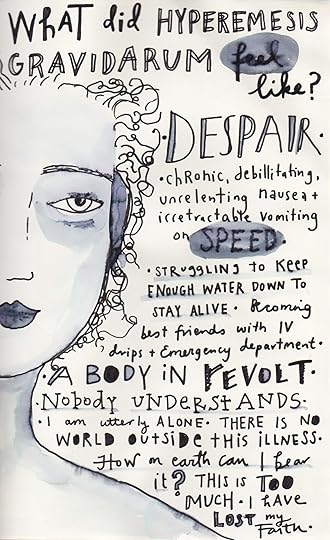 WHAT did HYPEREMESIS
GRAVIDARUM feel
like?
DESPAIR.
•chronic, debillitating,
unrelenting nausea +
irretractable vomiting
on SPEED.
• STRUGGLING to KEEP
ENOUGH WATER DOWN TO
STAY ALIVE • Becoming
best friends with IV
drips + Emergency department •
•A BODY IN rEVOLT.
•NObODY UNDERSTANDS.
• I am utterly ALONE. THERE IS NO
WORLD OUTSIDE tHIS ILLNESS.
How on earth can I bear
it? THIS IS TOO
MUCH. I have
LOST my
Faith.